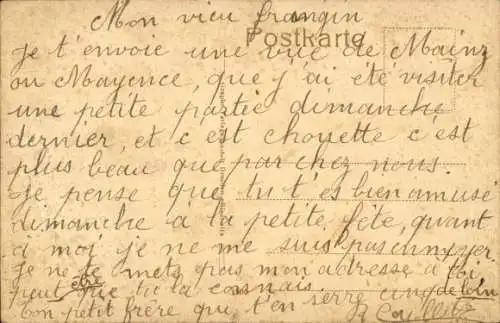 Mon vieu frangin
Postkarte
Je t'envoie une vue de Mainz
ou Mayence, que j'ai été visiter
une petite partie dimanche
dernier, et c'est chouette c'est
plus beau que par chez nous.
Je pense que tu t'es bien amusé
dimanche à la petite fête, quant
a moi je ne me suis pas ennuyer.
Je ne te mets pas mon adresse à toi
peut être que tu la connais.
bon petit frère que t'en serre cinq de loin